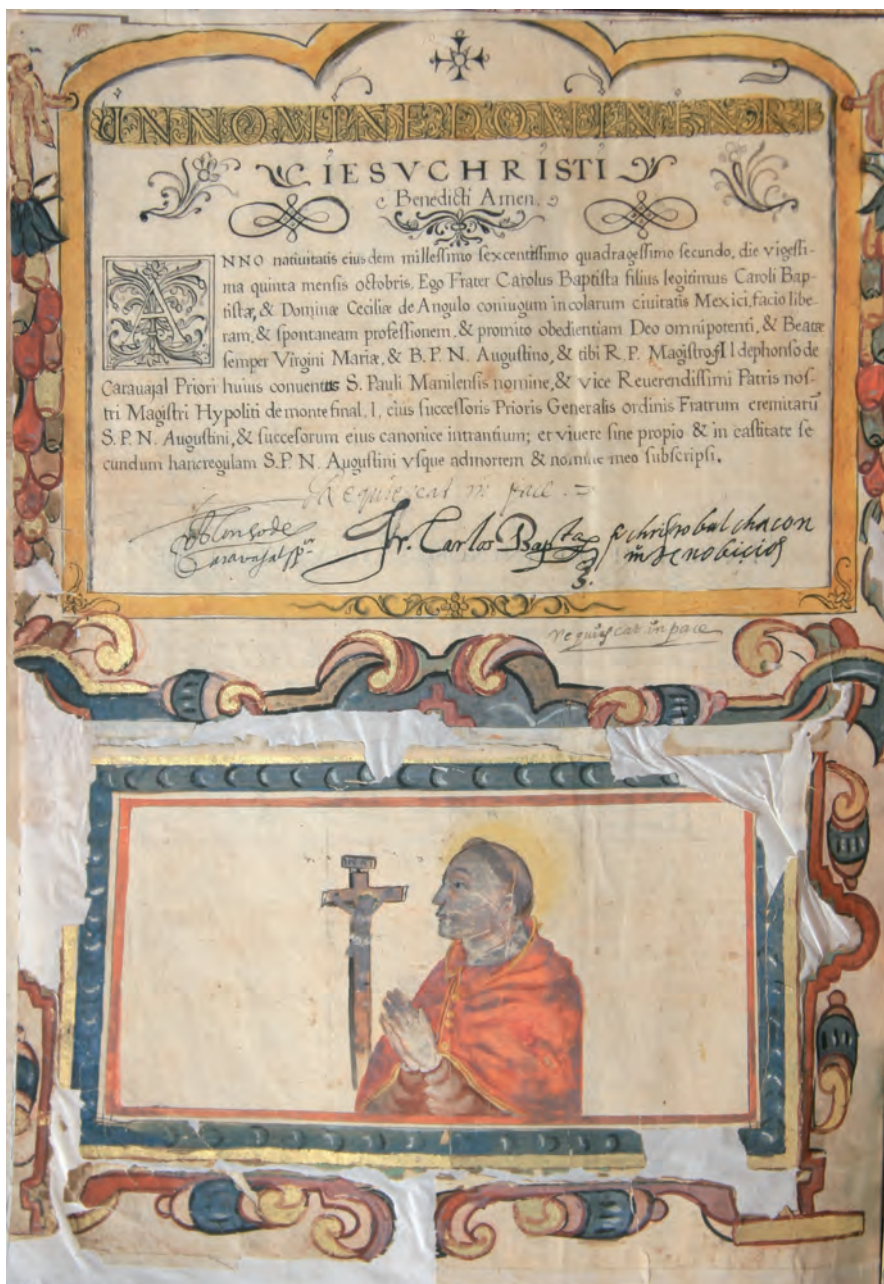 IN NOMINE DOMINI NRI
IESVCHRISTI
Benedicti Amen.
ANNO natiuitatis eiusdem millessimo sexcentissimo quadragessimo secundo, die vigessi-
ma quinta mensis octobris, Ego Frater Carolus Baptista filius legitimus Caroli Bap-
tistæ, & Dominæ Ceciliæ de Angulo coniugum incolarum ciuitatis Mexici, facio libe-
ram, & spontaneam professionem, & promito obedientiam Deo omnipotenti, & Beatæ
semper Virgini Mariæ, & B. P. N. Augustino, & tibi R. P. Magistro Ildephonso de
Carauajal Priori huius conuentus S. Pauli Manilensis nomine, & vice Reuerendissimi Patris nos-
tri Magistri Hypoliti de monte final. I, eius successoris Prioris Generalis ordinis Fratrum eremitarũ
S. P. N. Augustini, & succesorum eius canonice intrantium; et viuere sine propio & in castitate se
cundum hanc regulam S. P. N. Augustini vsque ad mortem & nomine meo subscripsi.
Requiescat in pace.
Alonso de
Caravajal pr
fr. Carlos Bapta
fr christobal chacon
mo de nobicios
requiescat in pace